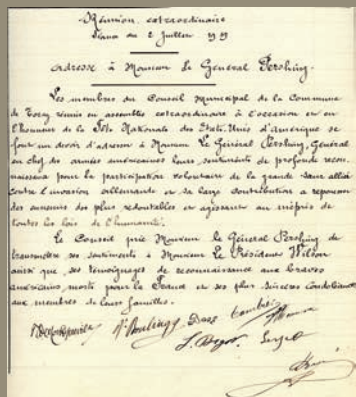 Réunion extraordinaire
Séance du 2 Juillet 1919
Adresse à Monsieur le Général Pershing.
Les membres du Conseil Municipal de la Commune
de Torcy réunis en assemblée extraordinaire à l'occasion et en
l'honneur de la Fête Nationale des Etats-Unis d'Amérique se
font un devoir d'adresser à Monsieur Le Général Pershing, Général
en chef des armées américaines leurs sentiments de profonde recon-
naissance pour la participation volontaire de la grande Sœur alliée
contre l'invasion allemande et sa large contribution à repousser
des ennemis des plus redoutables et agissant au mépris de
toutes les lois de l'humanité.
Le Conseil prie Monsieur le Général Pershing de
transmettre ses sentiments à Monsieur Le Président Wilson
ainsi que ses témoignages de reconnaissance aux braves
américains morts pour la France et ses plus sincères condoléances
aux membres de leurs familles.